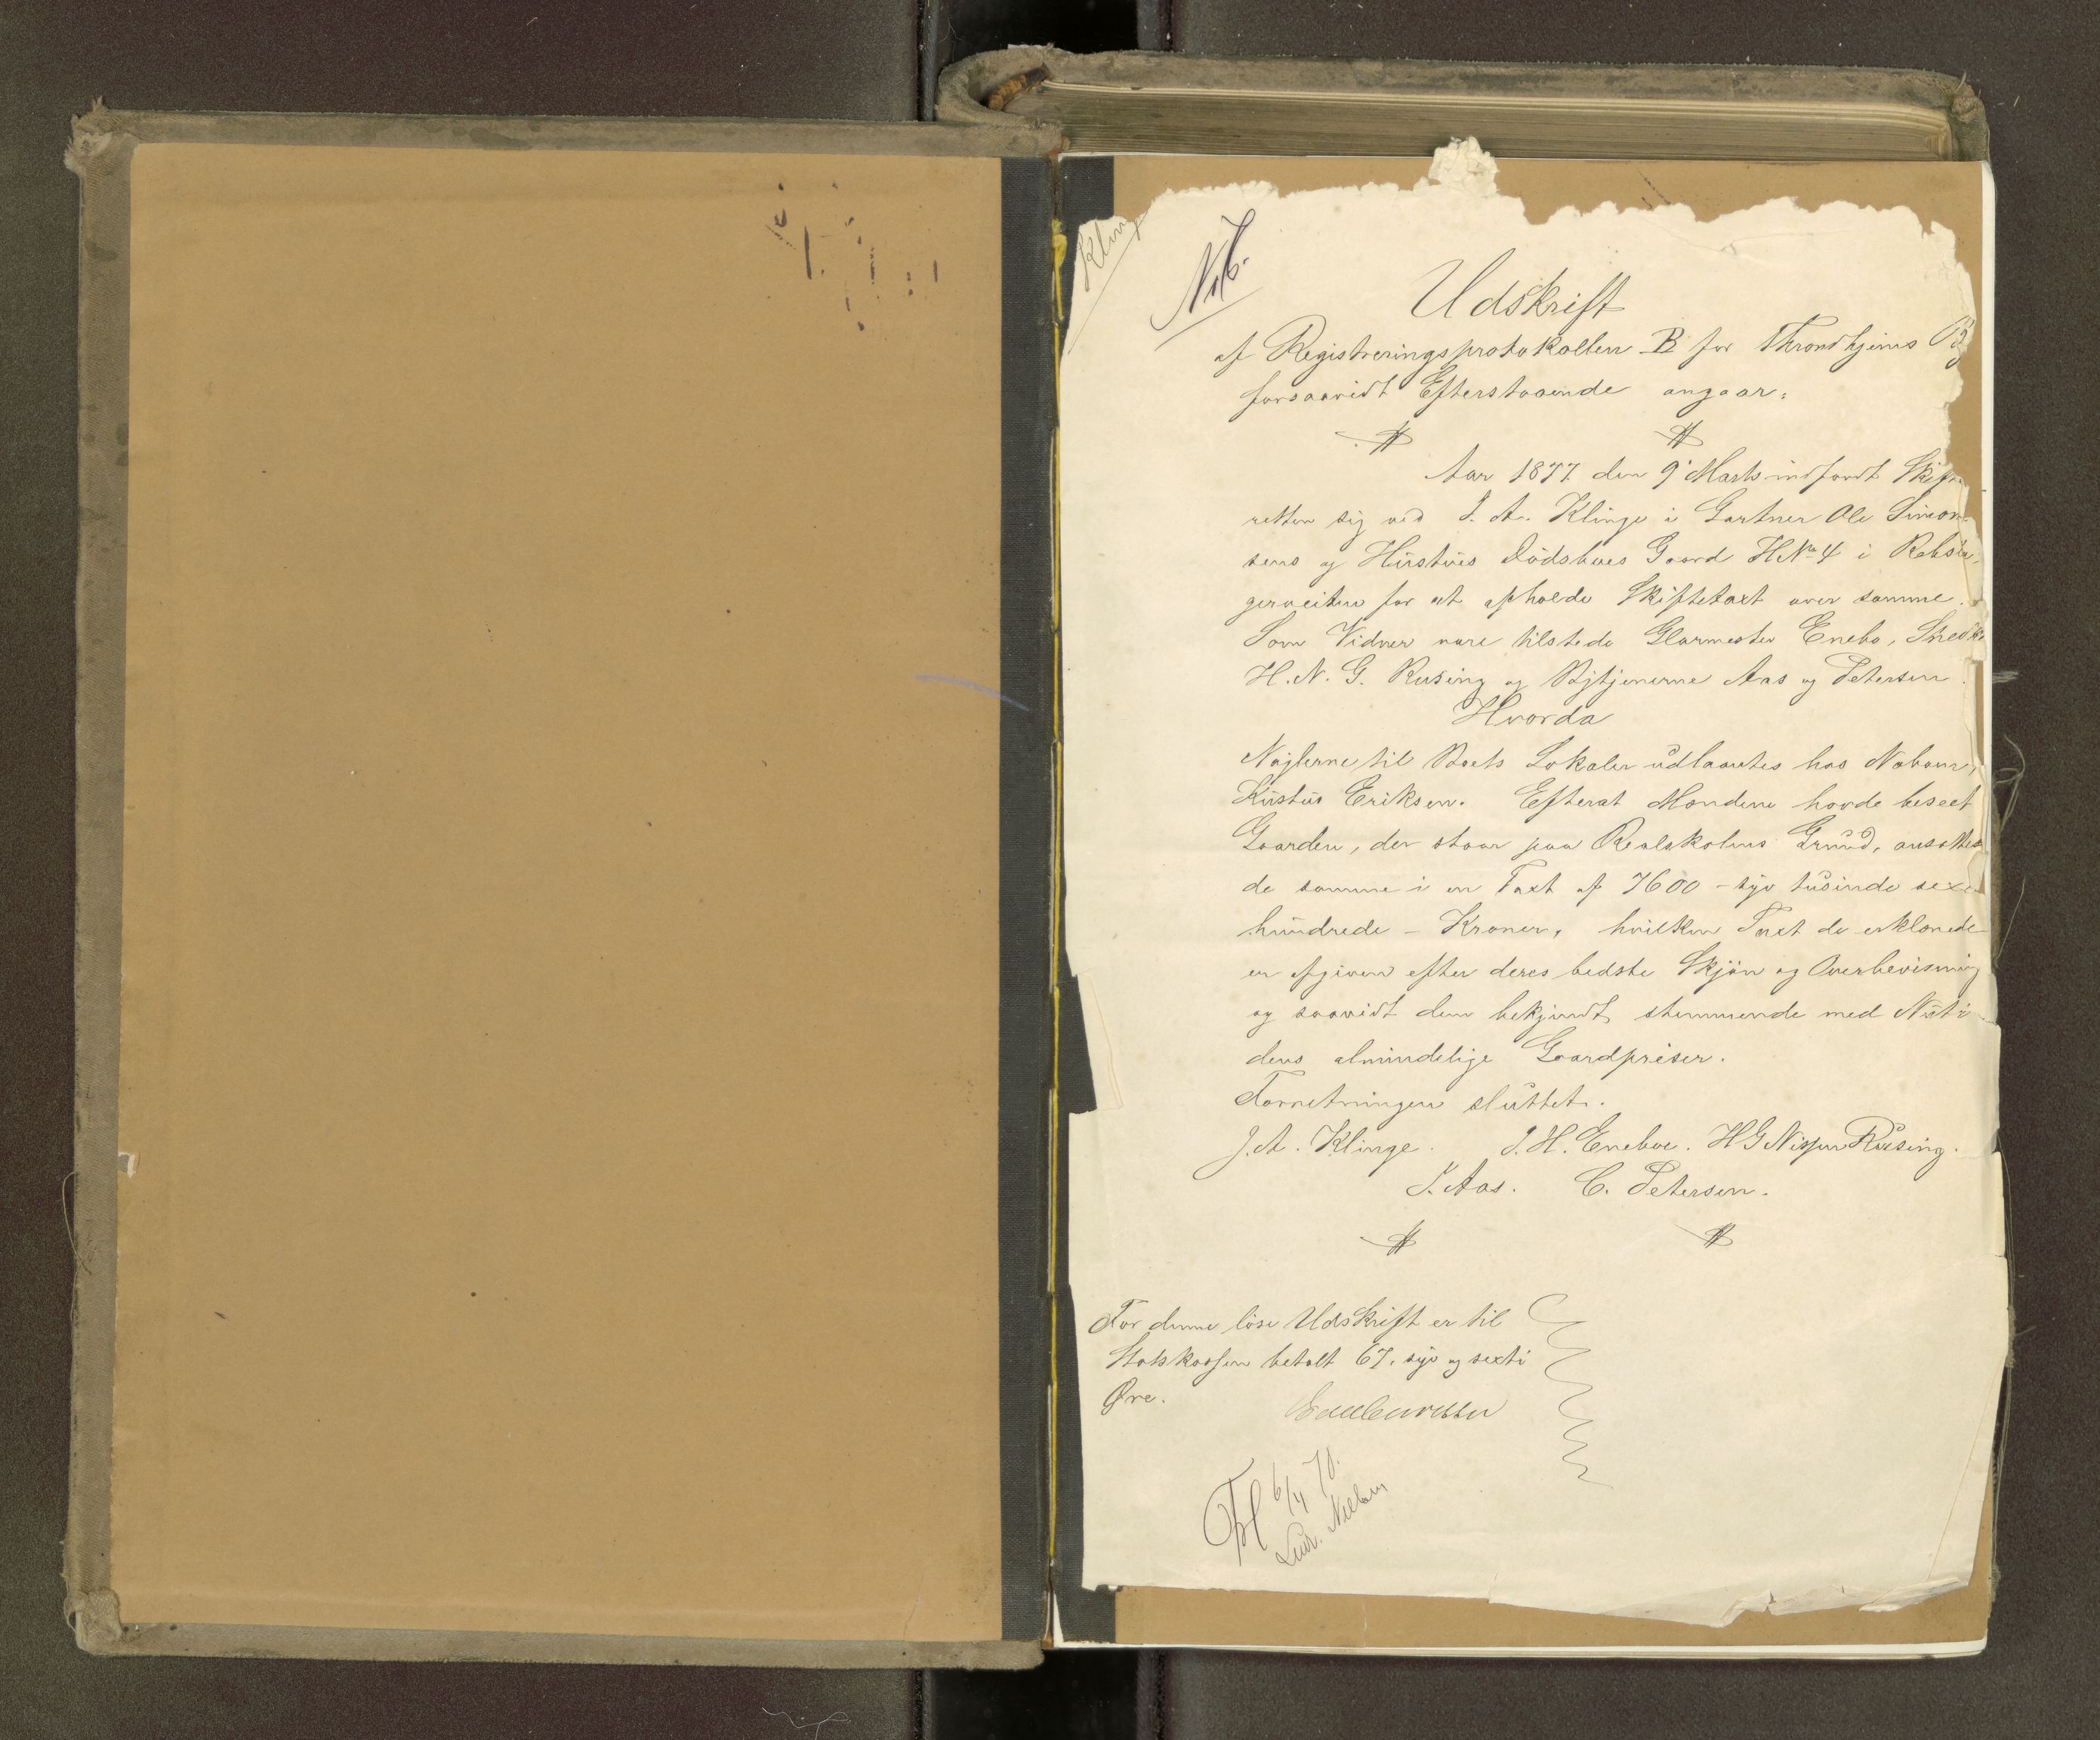 Kling
No 6.
Udskrift
af Registreringsprotokollen B for Throndhjems By
forsaavidt Efterstaaende angaar:
Aar 1877 den 9' Marts indfandt Skifte
retten sig ved J. A. Klinge i Gartner Ole Simon-
sens og Hustrues Dödsboes Gaard HNo 4 i Rebsla
gerveiten for at afholde Skiftetaxt over samme.
Som Vidner vare tilstede Glarmester Enebo, Snedker
H. N. G. Rusing og Bytjenerne Aas og Petersen.
Hvorda
Nøglerne til Boets Lokaler udlaantes hos Naboen,
Eriksen. Efterat Mændene havde beseet
Gaarden, der staar paa Realskolens Grund, ansatte
de samme i en Taxt af 7600 - syv tusinde sex
hundrede - Kroner, hvilken Taxt de erklærede
er afgiven efter deres bedste Skjön og Overbevisning
og saavidt dem bekjendt stemmende med Nuti
dens almindelige Gaardpriser.
Forretningen sluttet.
J. A. Klinge. J. H. Eneboe. H G Nissen Rusing.
J. Aas. C. Petersen.
For denne löse Udskrift er til
Statskassen betalt 67, syv og sexti
Øre.
6/4 78.
Ludv. Nielsen